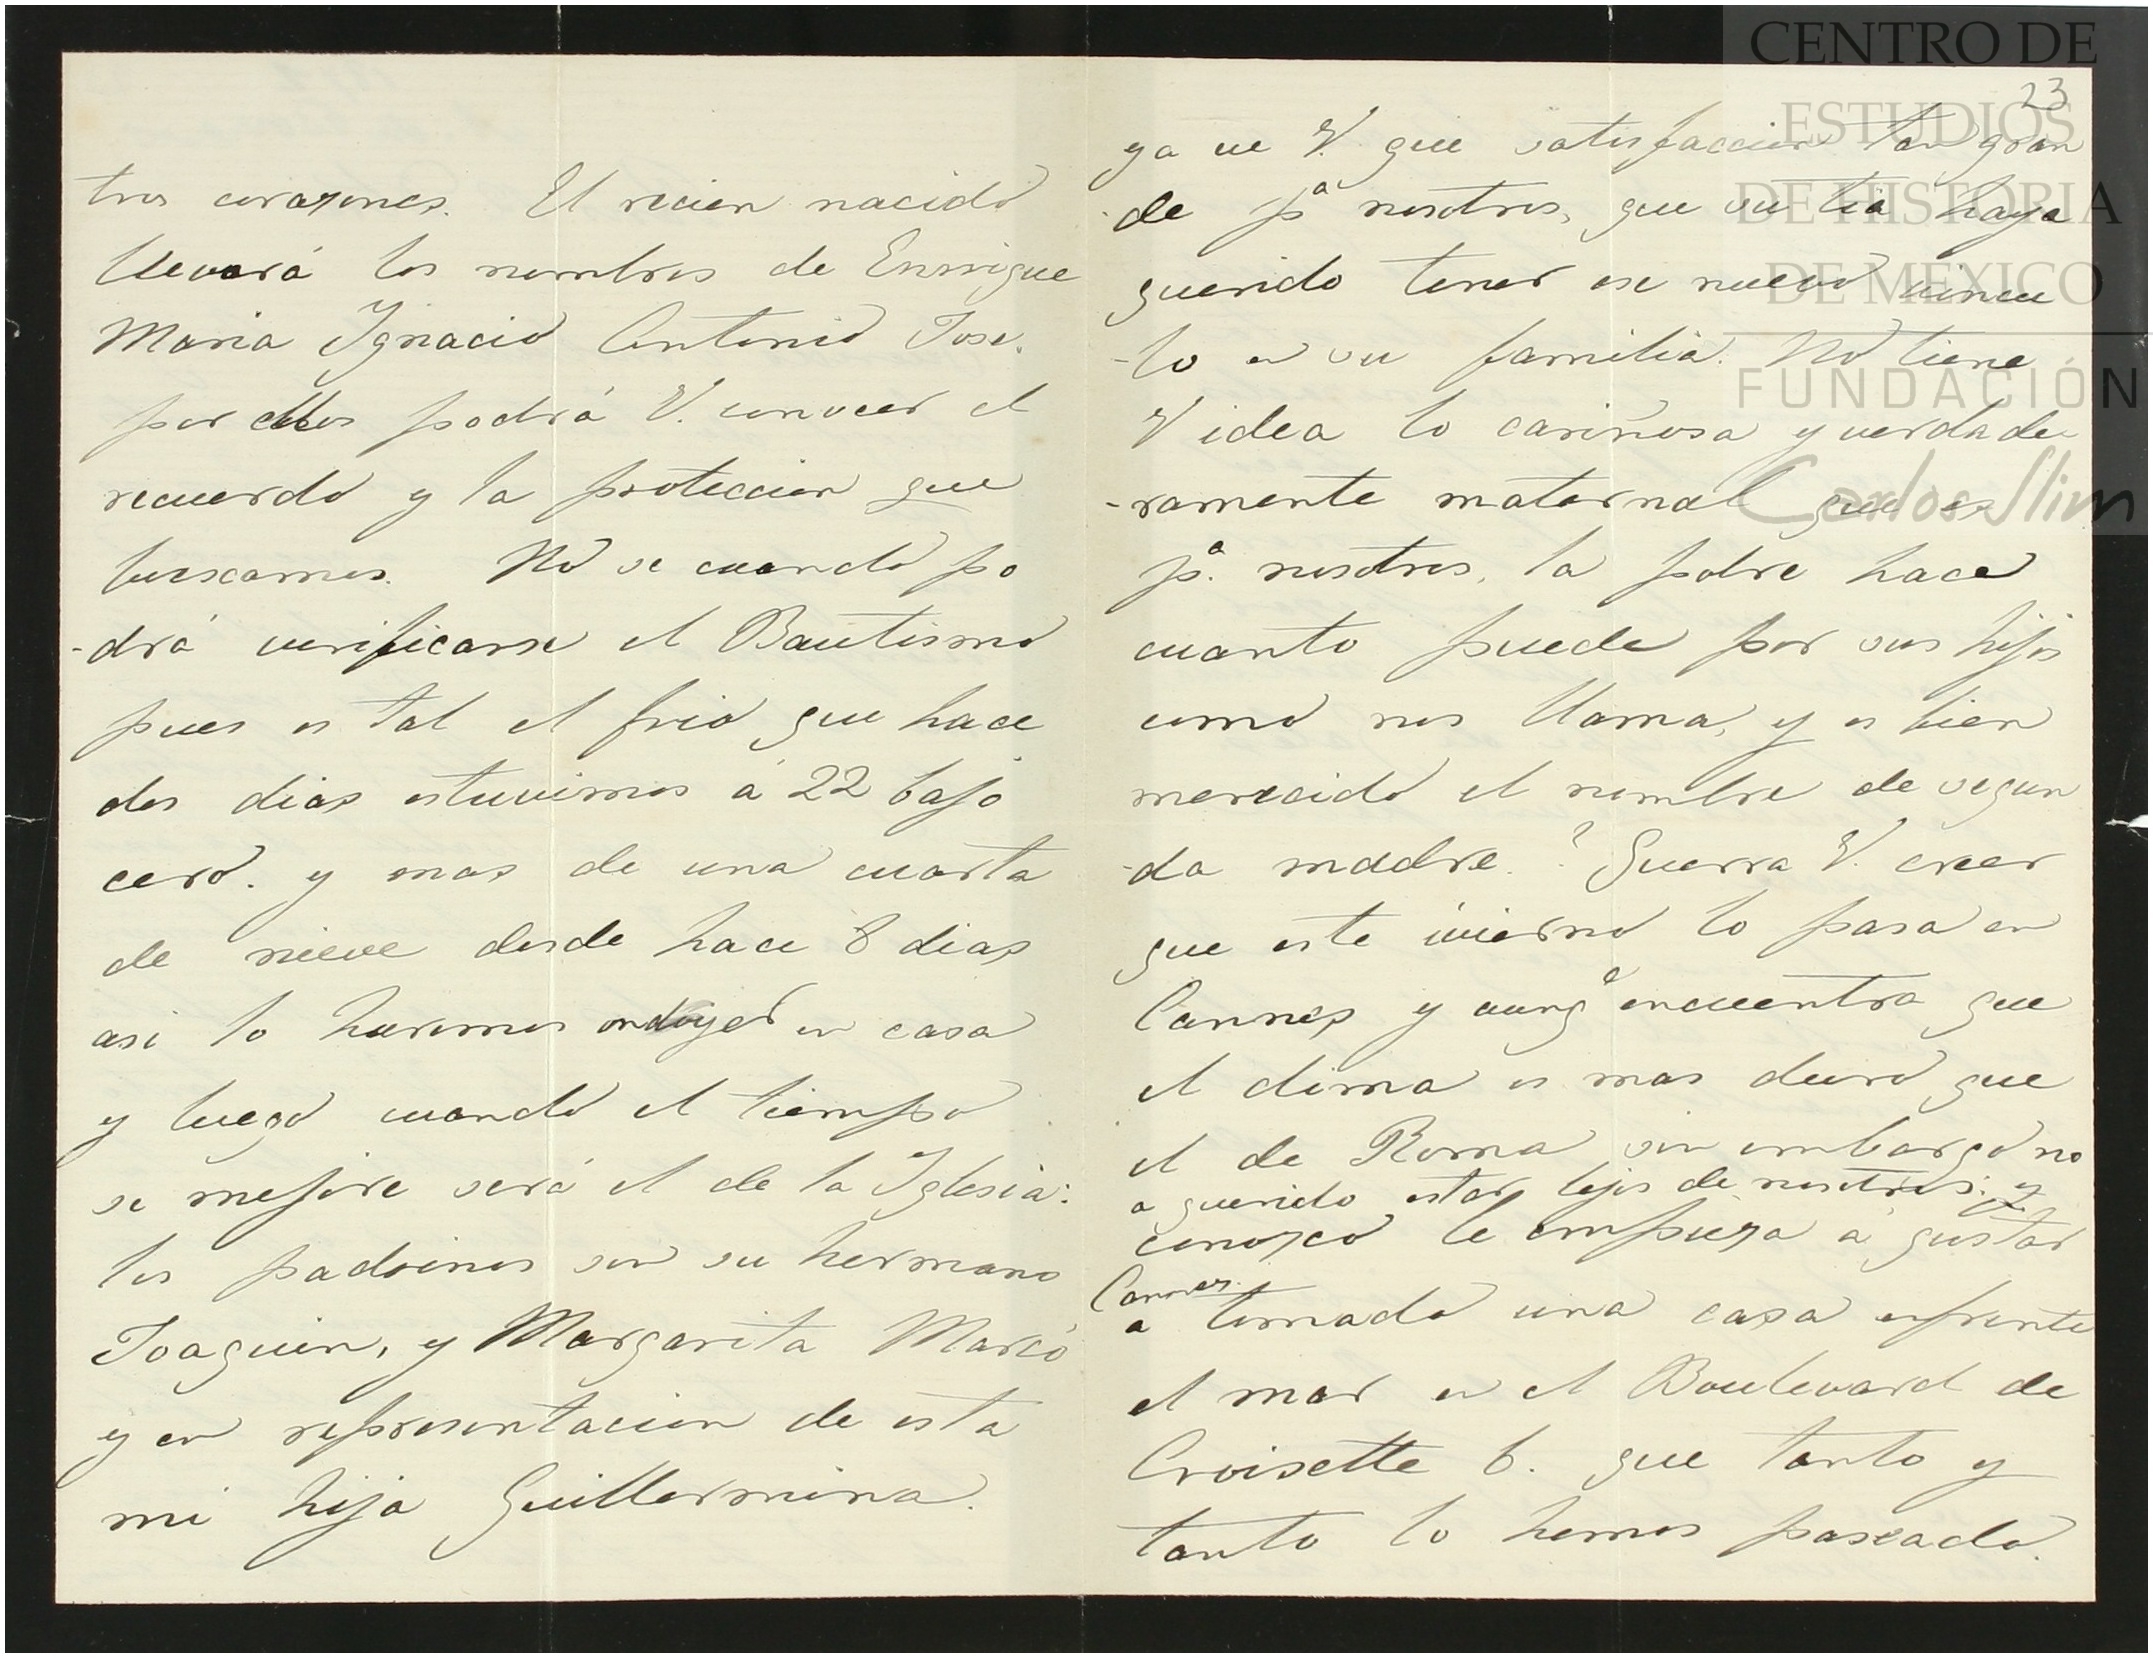 tros corazones. El recien nacido
llevará los nombres de Enrrique
Maria Ygnacio Antonio Jose.
por ellos podrá V. conocer el
recuerdo y la proteccion que
buscamos. No se cuando po
-drá verificarse el Bautismo
pues es tal el frio que hace
dos dias estuvimos á 22 bajo
cero. y mas de una cuarta
de nieve desde hace 8 dias
asi lo haremos en casa
y luego cuando el tiempo
se mejore será el de la Yglesia:
los padrinos son su hermano
Joaquin, y Margarita Marcó
y en representacion de esta
mi hija Guillermina.
23
ya ve V. que satisfaccion tan gran
-de pa nosotros, que su tia haya
querido tener ese nuevo vincu
-lo en su familia. No tiene
V idea lo cariñosa y verdade-
-ramente maternal que es
pa. nosotros, la pobre hace
cuanto puede por sus hijos
como nos llama, y es bien
merecido el nombre de segun
-da madre. ? Querra V. creer
que este ivierno lo pasa en
Cannes y aunqe encuentra que
el clima es mas duro que
el de Roma sin embargo no
a querido estar lejos de nosotros; y
conozco le empieza á gustar
Cannes.
a tomado una casa enfrente
el mar en el Boulevard de
Croisette 6. que tanto y
tanto lo hemos paseado.
CENTRO DE
ESTUDIOS
DE HISTORIA
DE MÉXICO
FUNDACIÓN
Carlos Slim